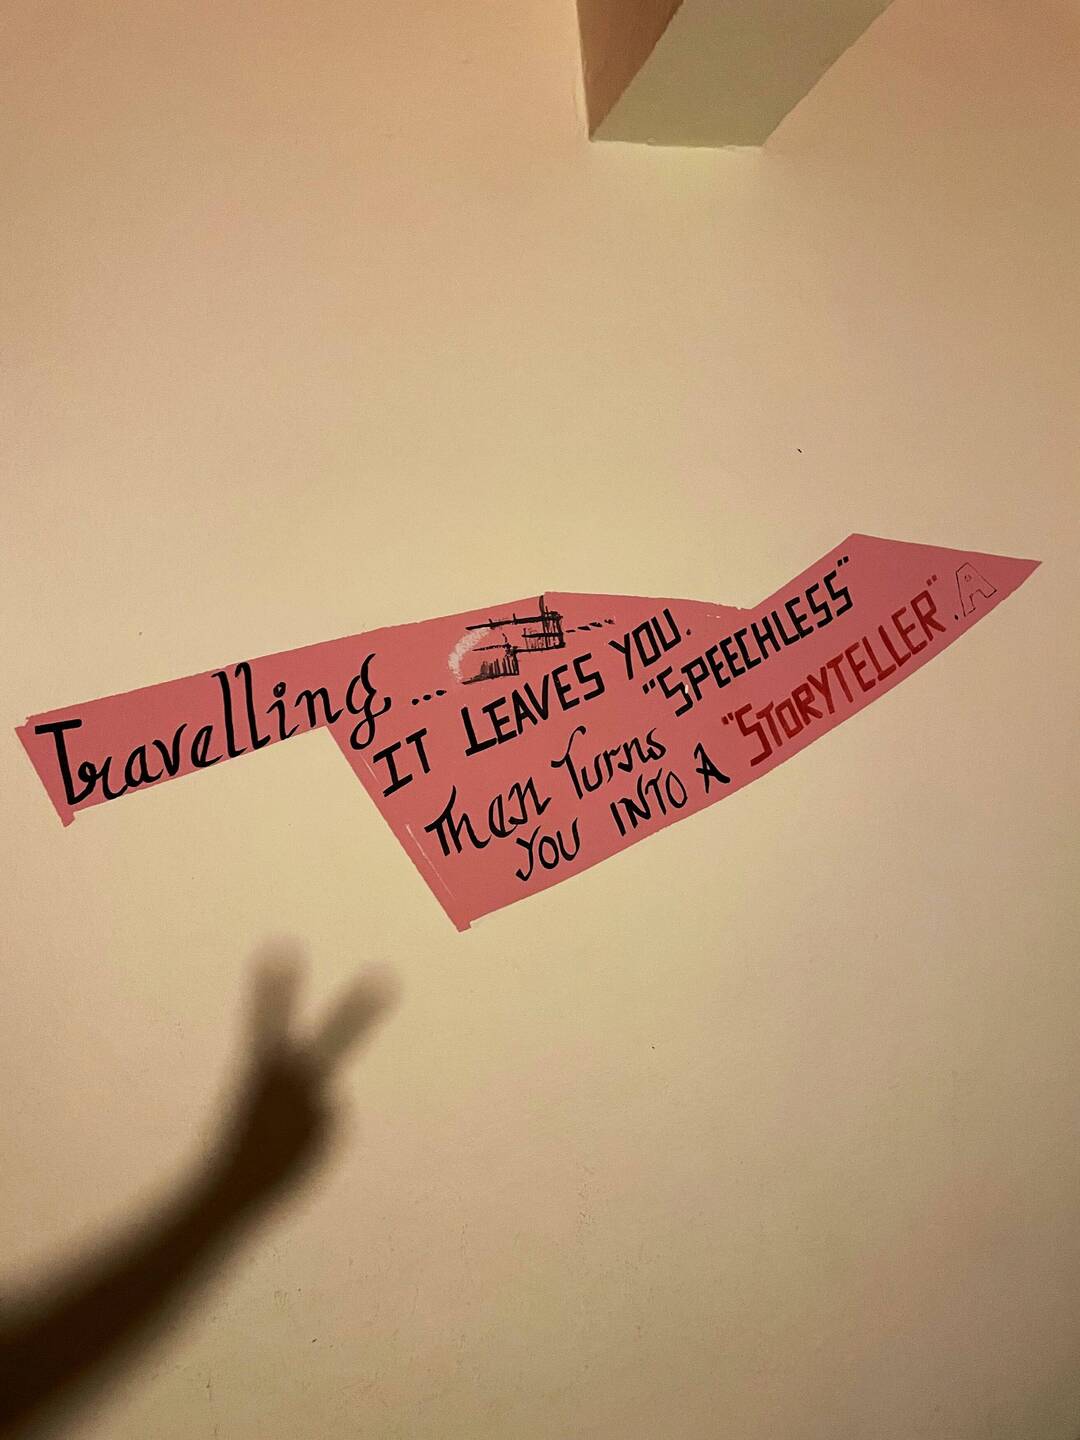 Travelling...
IT LEAVES YOU.
"SPEECHLESS"
Then Turns
YOU INTO A "STORYTELLER".
A